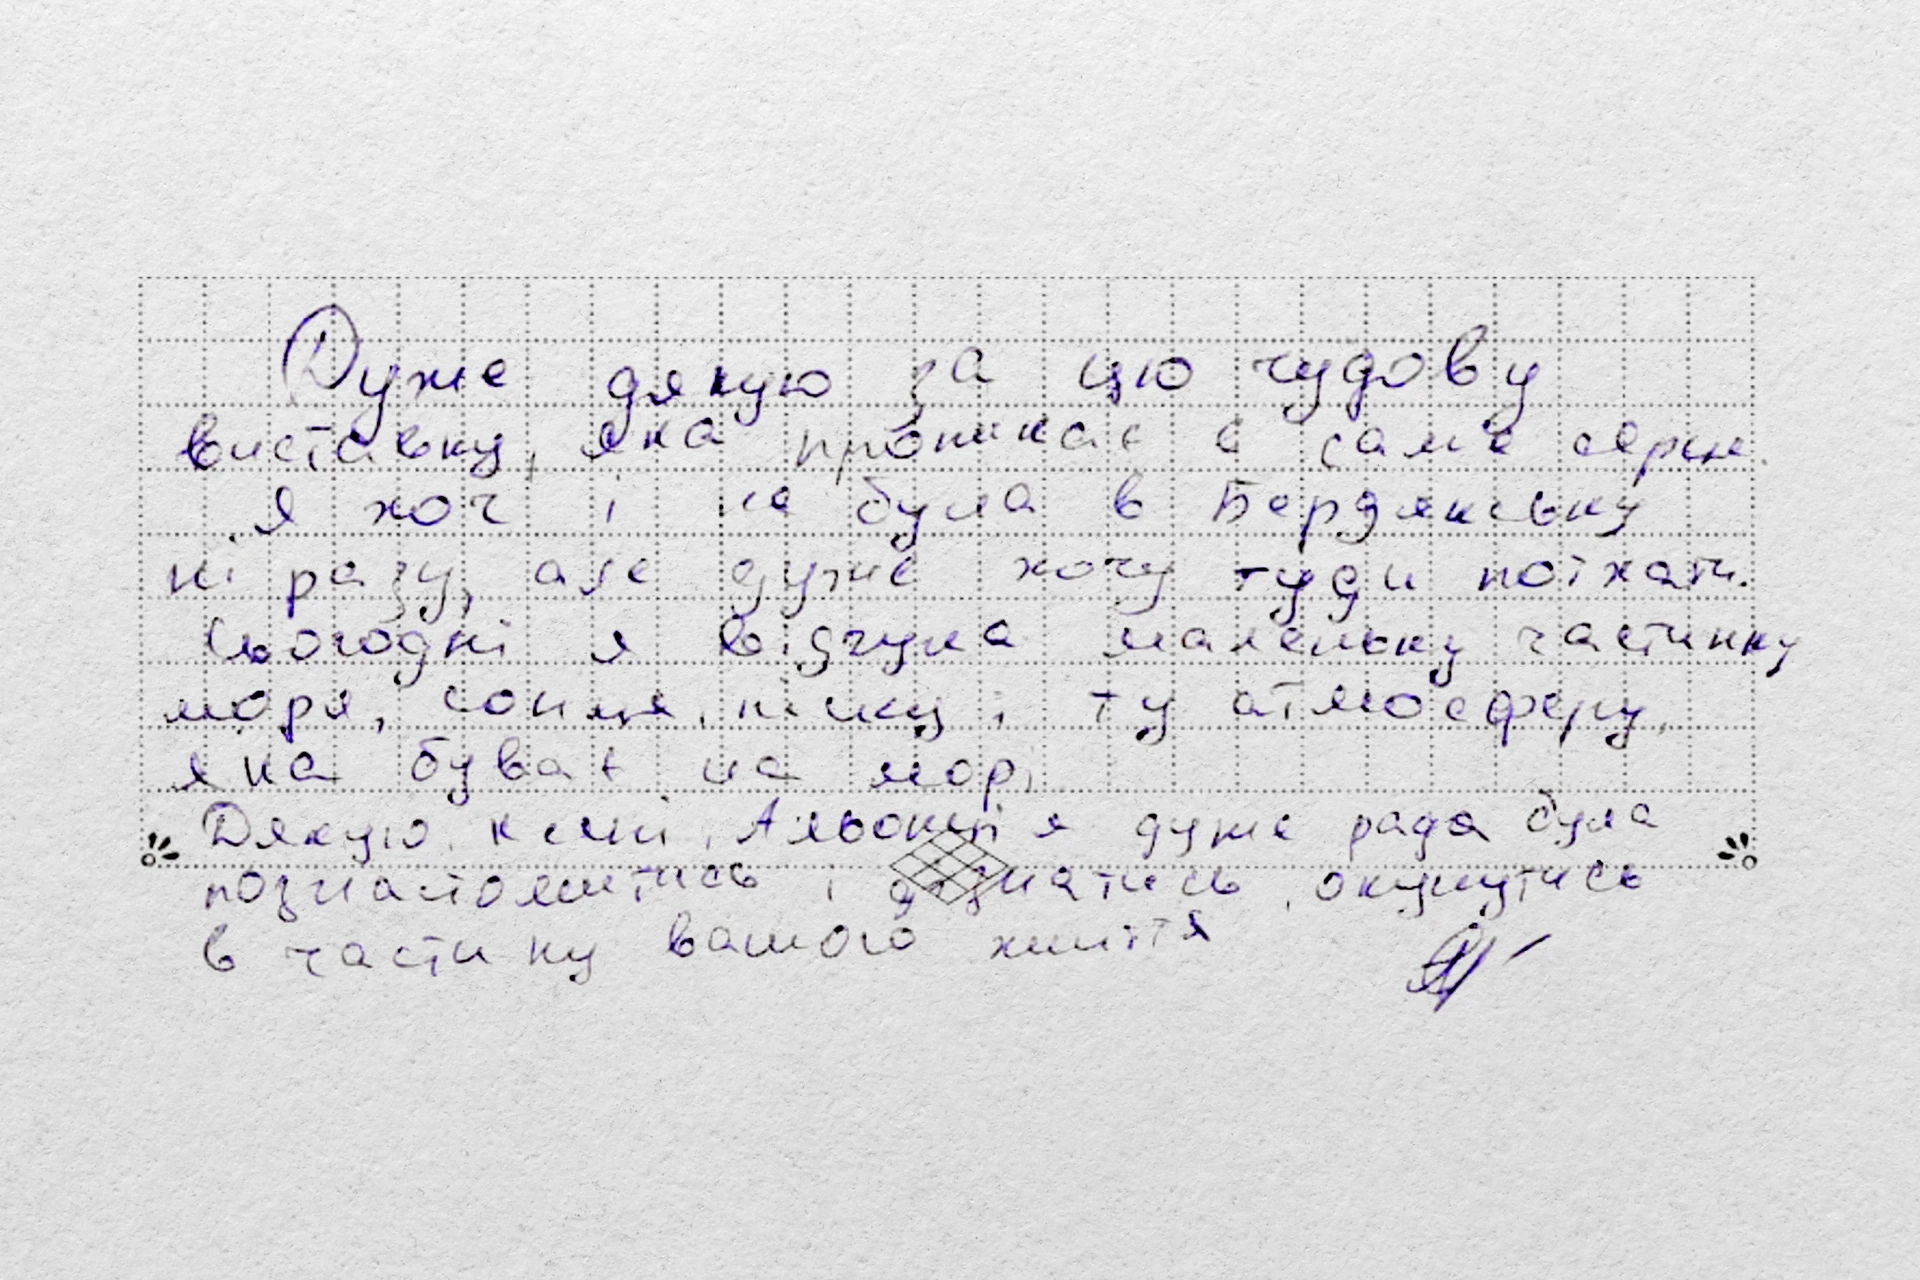 Дуже дякую за цю чудову
виставку, яка проникає в саме серце.
Я хоч і не була в Бердянську
ні разу, але дуже хочу туди поїхати.
Сьогодні я відчула маленьку частинку
моря, сонця, піску і ту атмосферу,
яка буває на морі
Дякую, я дуже рада була
познайомитись і дізнатись, окунутись
в частинку вашого життя